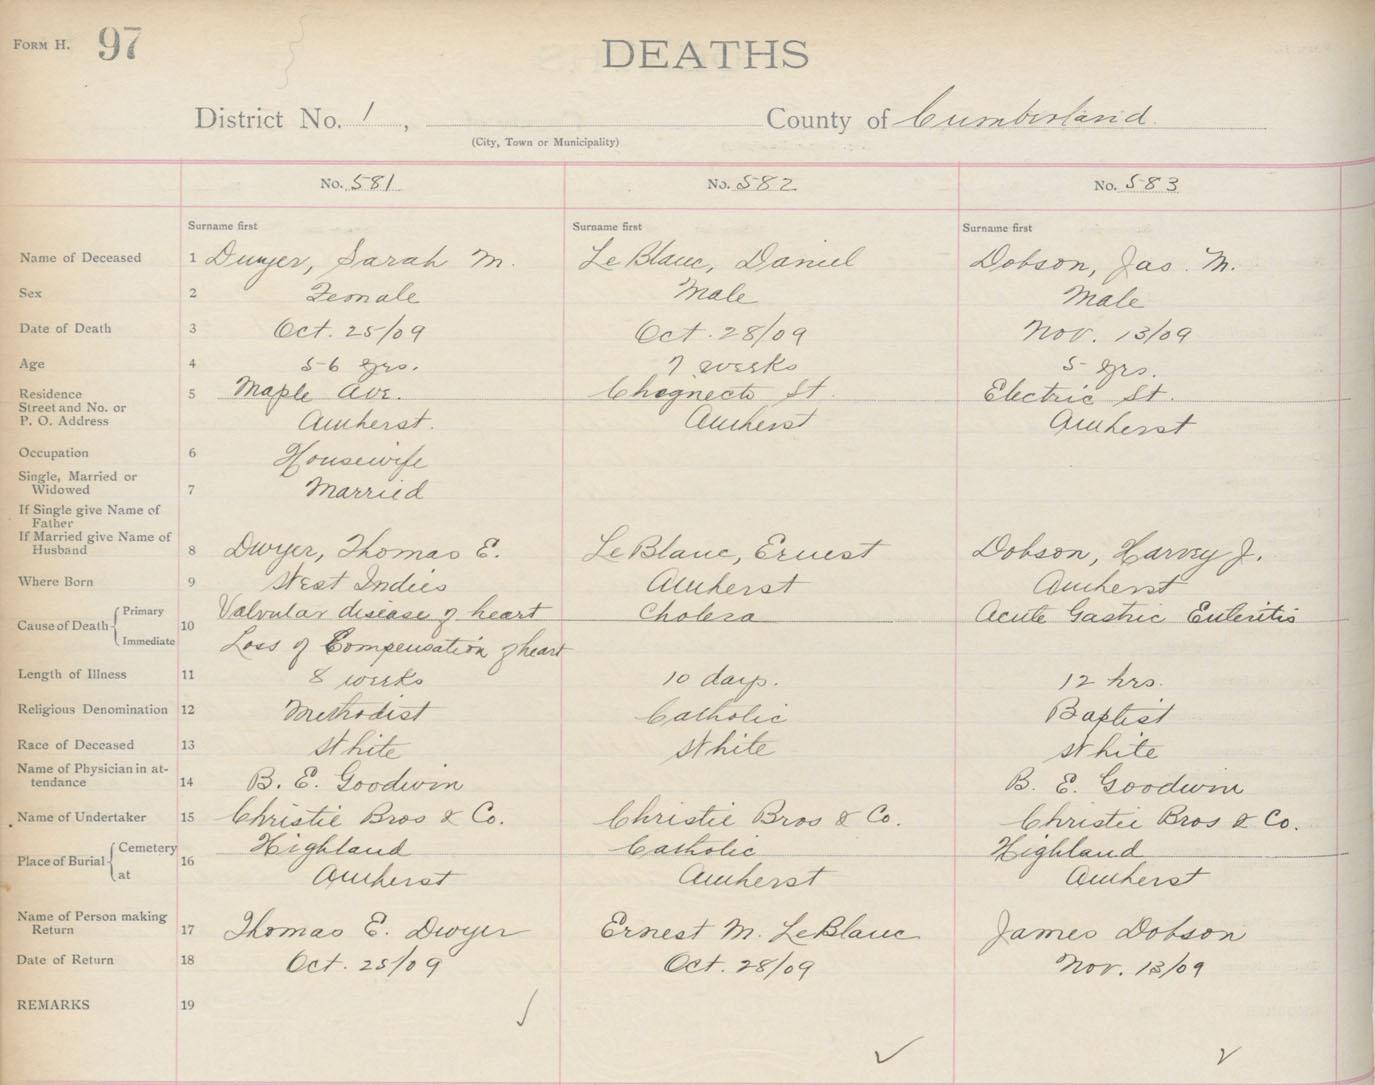 FORM H. 97
DEATHS
District No. 1, County of Cumberland
(City, Town or Municipality)
No. 581 No. 582 No. 583
Surname first Surname first Surname first
Name of Deceased 1 Dwyer, Sarah M. LeBlanc, Daniel Dobson, Jas. M.
Sex 2 Female Male Male
Date of Death 3 Oct. 25/09 Oct. 28/09 Nov. 13/09
Age 4 56 yrs. 7 weeks 5 yrs.
Residence 5 Maple Ave. Chignecto St. Electric St.
Street and No. or
P. O. Address Amherst. Amherst Amherst
Occupation 6 Housewife
Single, Married or
Widowed 7 Married
If Single give Name of
Father
If Married give Name of
Husband 8 Dwyer, Thomas E. LeBlanc, Ernest Dobson, Harvey J.
Where Born 9 West Indies Amherst Amherst
Cause of Death { Primary 10 Valvular disease of heart Cholera Acute Gastric Enteritis
Immediate Loss of Compensation of heart
Length of Illness 11 8 weeks 10 days. 12 hrs.
Religious Denomination 12 Methodist Catholic Baptist
Race of Deceased 13 White White White
Name of Physician in at-
tendance 14 B. E. Goodwin B. E. Goodwin
Name of Undertaker 15 Christie Bros & Co. Christie Bros & Co. Christie Bros & Co.
Place of Burial { Cemetery 16 Highland Catholic Highland
at Amherst Amherst Amherst
Name of Person making
Return 17 Thomas E. Dwyer Ernest M. LeBlanc James Dobson
Date of Return 18 Oct. 25/09 Oct. 28/09 Nov. 13/09
REMARKS 19